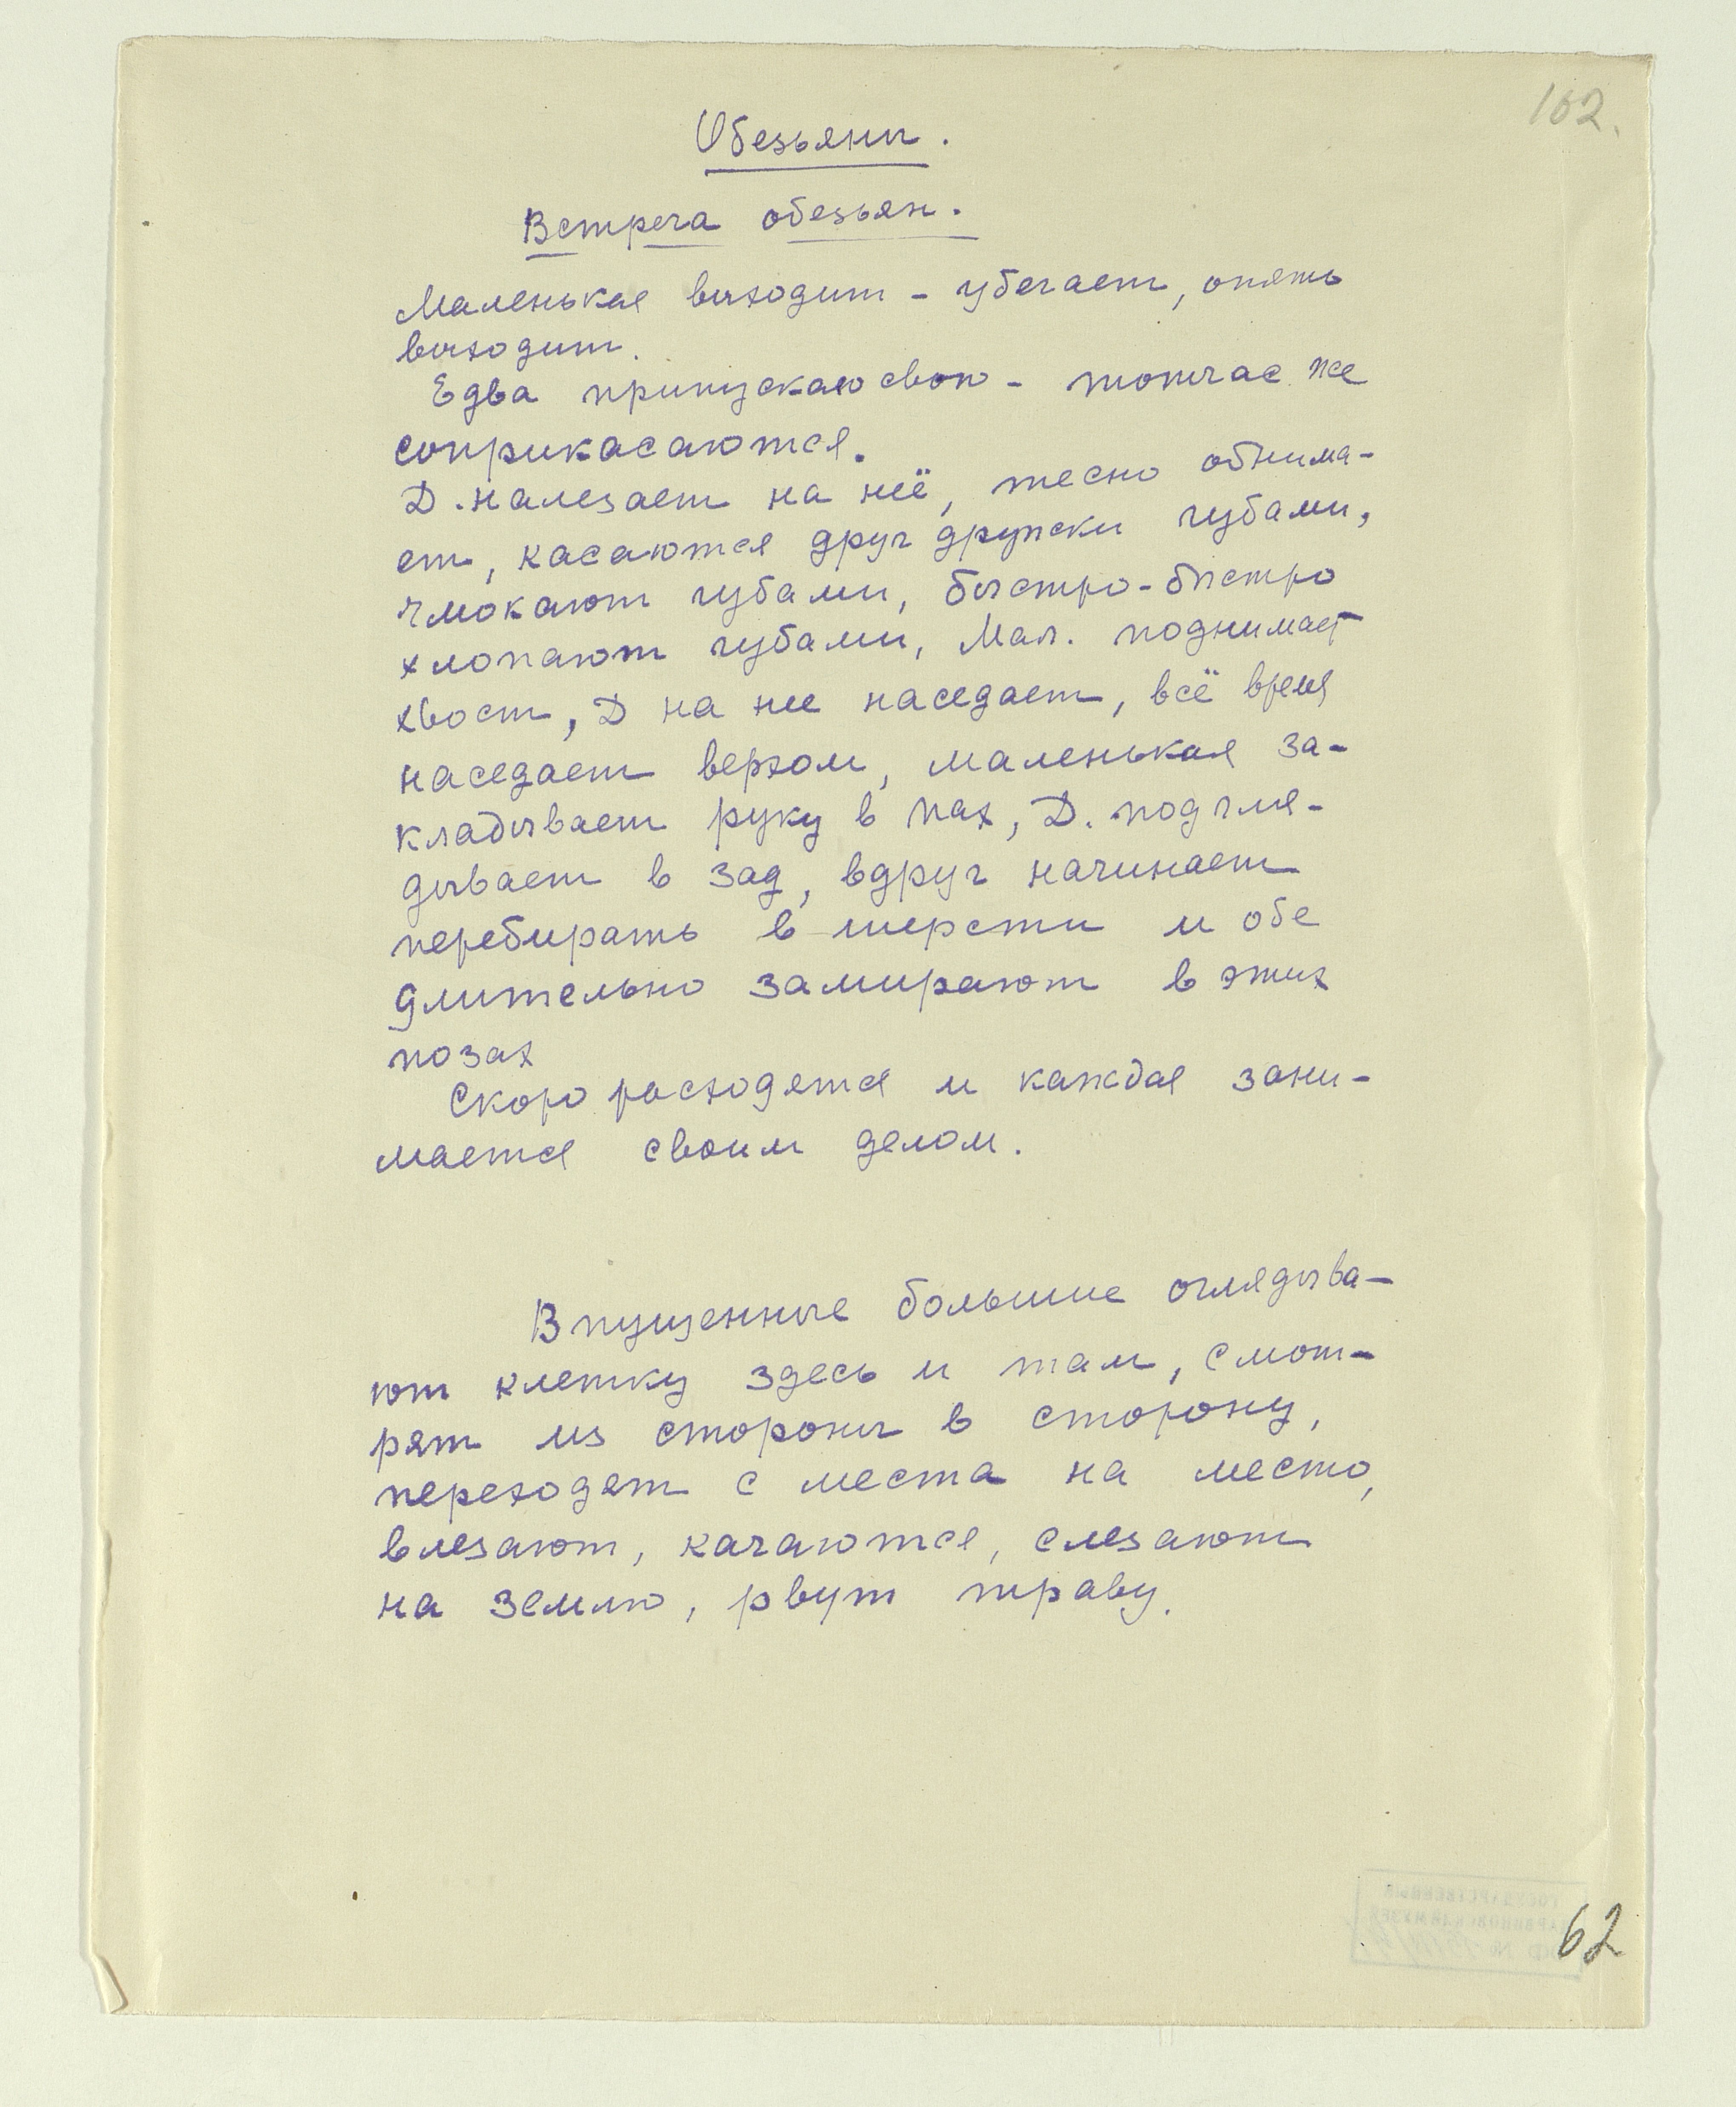 102.
Обезьяны.
Встреча обезьян.
Маленькая выходит - убегает, опять
выходит.
Едва припускаю свою - тотчас же
соприкасаются.
Д. налезает на неё, тесно обнима-
ет, касаются друг дружки губами,
чмокают губами, быстро-быстро
хлопают губами, Мал. поднимает
хвост, Д на нее наседает, всё время
наседает верхом, маленькая за-
кладывает руку в пах, Д. подгля-
дывает в зад, вдруг начинает
перебирать в шерсти и обе
длительно замирают в этих
позах
Скоро расходятся и каждая зани-
мается своим делом.
Впущенные большие оглядыва-
ют клетку здесь и там, смот-
рят из стороны в сторону,
переходят с места на место,
влезают, качаются, слезают
на землю, рвут траву.
62